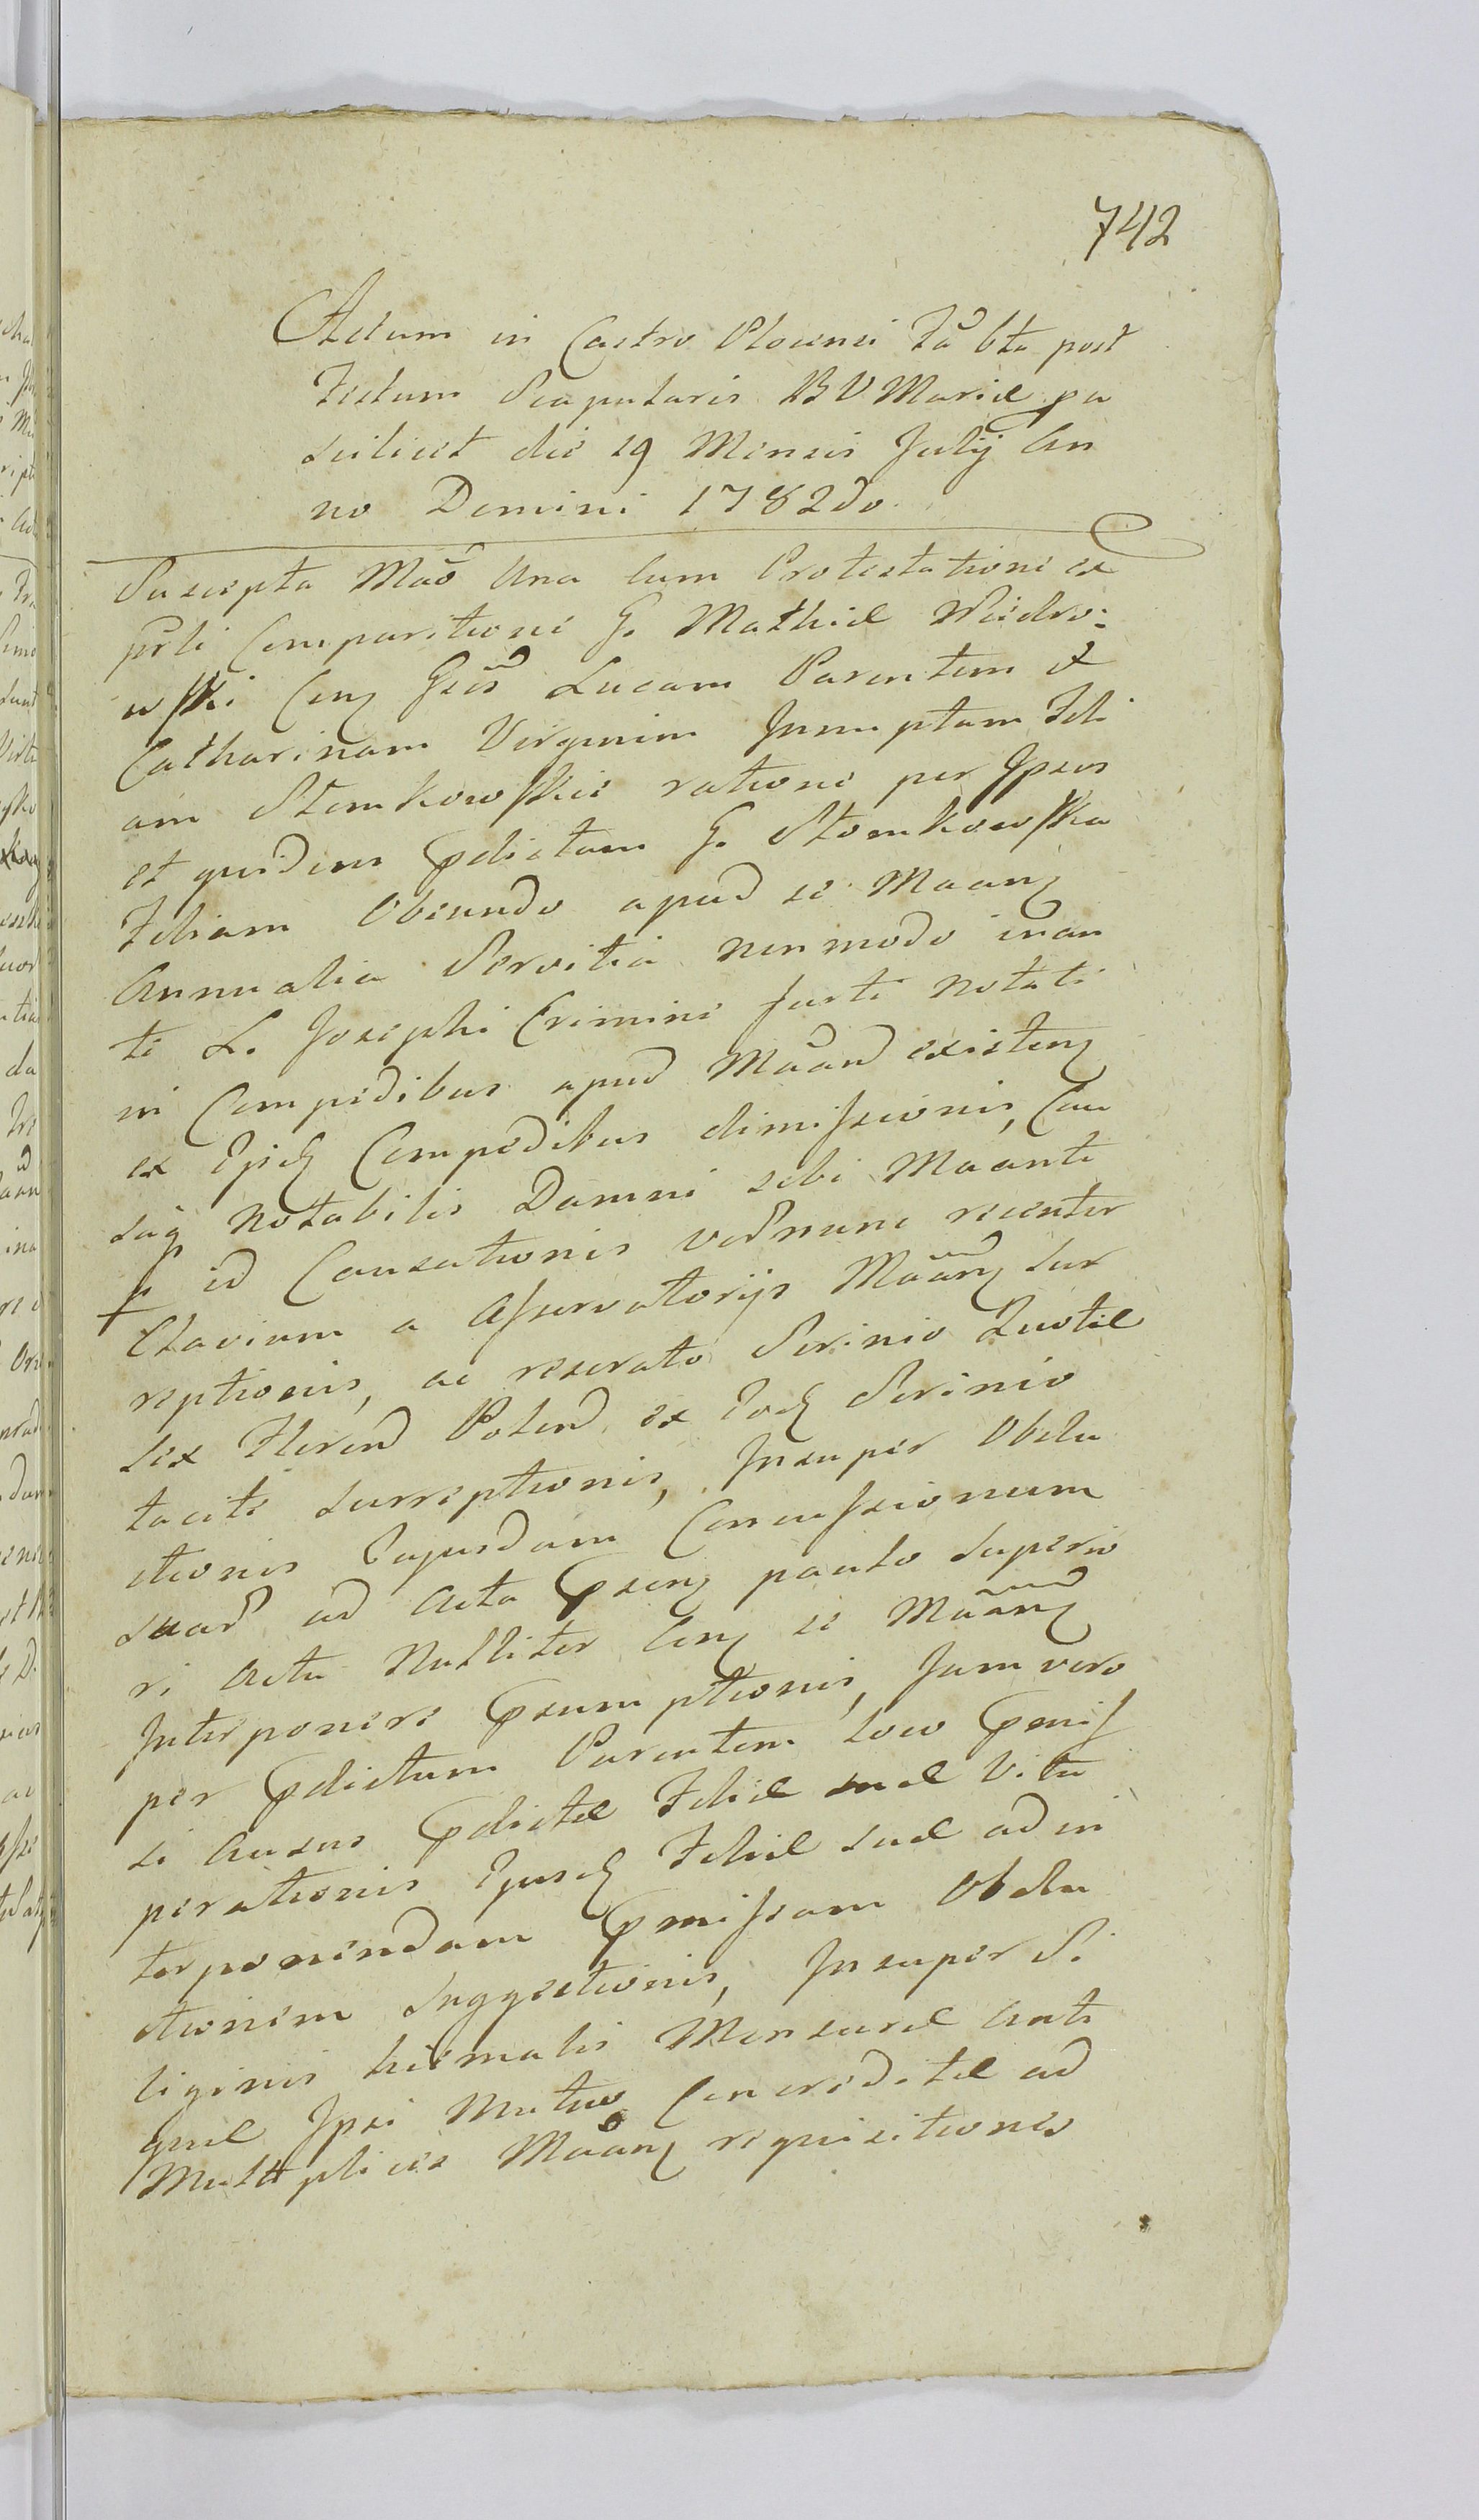 742
Actum in Castro Plocensi Fa 6ta post
Festum Scapularis B V Mariæ pa
scilicet die 19 Mensis Julij An
no Domini 1782do
Suscepta Mãõ Una cum Protestatione ex
prli Comparitione G. Mathiæ Wiedro:
wski Con Gsos Lucam Parentem et
Catharinam Virginem Innuptam Fili
am Slomkowskie ratione per Ipsos
et quidem pdictam G. Slomkowska
Filiam Obeundo apud se Maan
Annualia Servitia non modo inan
te L. Josephi Crimine furti notati
in Compedibus apud Maand existen
ex Ejsd Compedibus dimissionis, Cau
saq notabilis Damni sibi Maanti
p id Causationis vednunc recenter
Clavium a Asservatorijs Maan sur
reptionis, ac reserato Scrinio Quotæ
sex Floren Polend ex Eod Scrinio
tacite surreptionis, Insuper Obdu
ctionis Cujusdam Concussionum
suar ad Acta psen paulo superio
ri Actu Nulliter Con se Maan
Interponere psumptionis, Jam vero
per pdictum Parentem loco pmis
si Ausus pdictæ Filiæ suæ Vitu
perationis Ejusd Filiæ suæ ad in
terponendam pmissam Obdu
ctionem suggestionis, Insuper Si
liginis hiemalis Mensuræ Anti
quæ Ipsi Mutuo Concreditæ ad
Multiplices Maan requisitiones